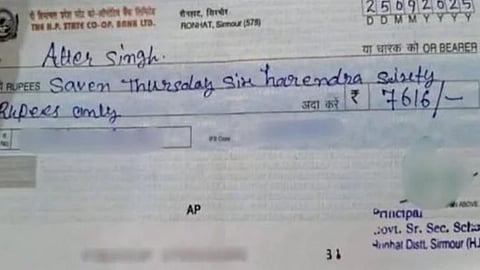 हिमाचल प्रदेश स्टेट को-ऑपरेटिव बैंक लिमिटेड
THE H.P. STATE CO-OP. BANK LTD.
रोनहाट, सिरमौर
RONHAT, Sirmour (578)
25092025
DDMMYYYY
Atter Singh.
या धारक को OR BEARER
RUPEES Saven Thursday Six harendra Sixty
Rupees only
अदा करें ₹ 7616/-
IFS Code
AP
ABOVE
Principal
Govt. Sr. Sec. Scho
Ronhat Distt. Sirmour (H.
31